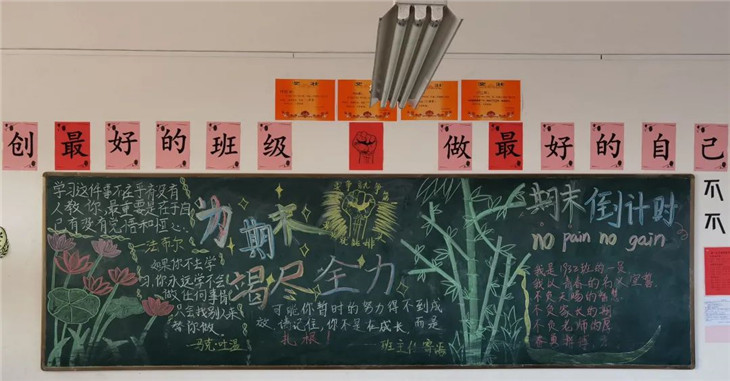 创最好的班级
做最好的自己
学习这件事不在乎有没有
人教你,最重要是在于自
己有没有觉悟和恒心。
—法布尔
如果你不去学
习,你永远学不会
做任何事情
只会找别人来
替你做。
—马克·吐温
为期末
竭尽全力
可能你暂时的努力得不到成
放,请记住,你不是在成长,而是
扎根!
期末倒计时
no pain no gain
我是1932班的一员
我以青春的名义宣誓
不负天赐的智慧
不负家长的期
不负老师的